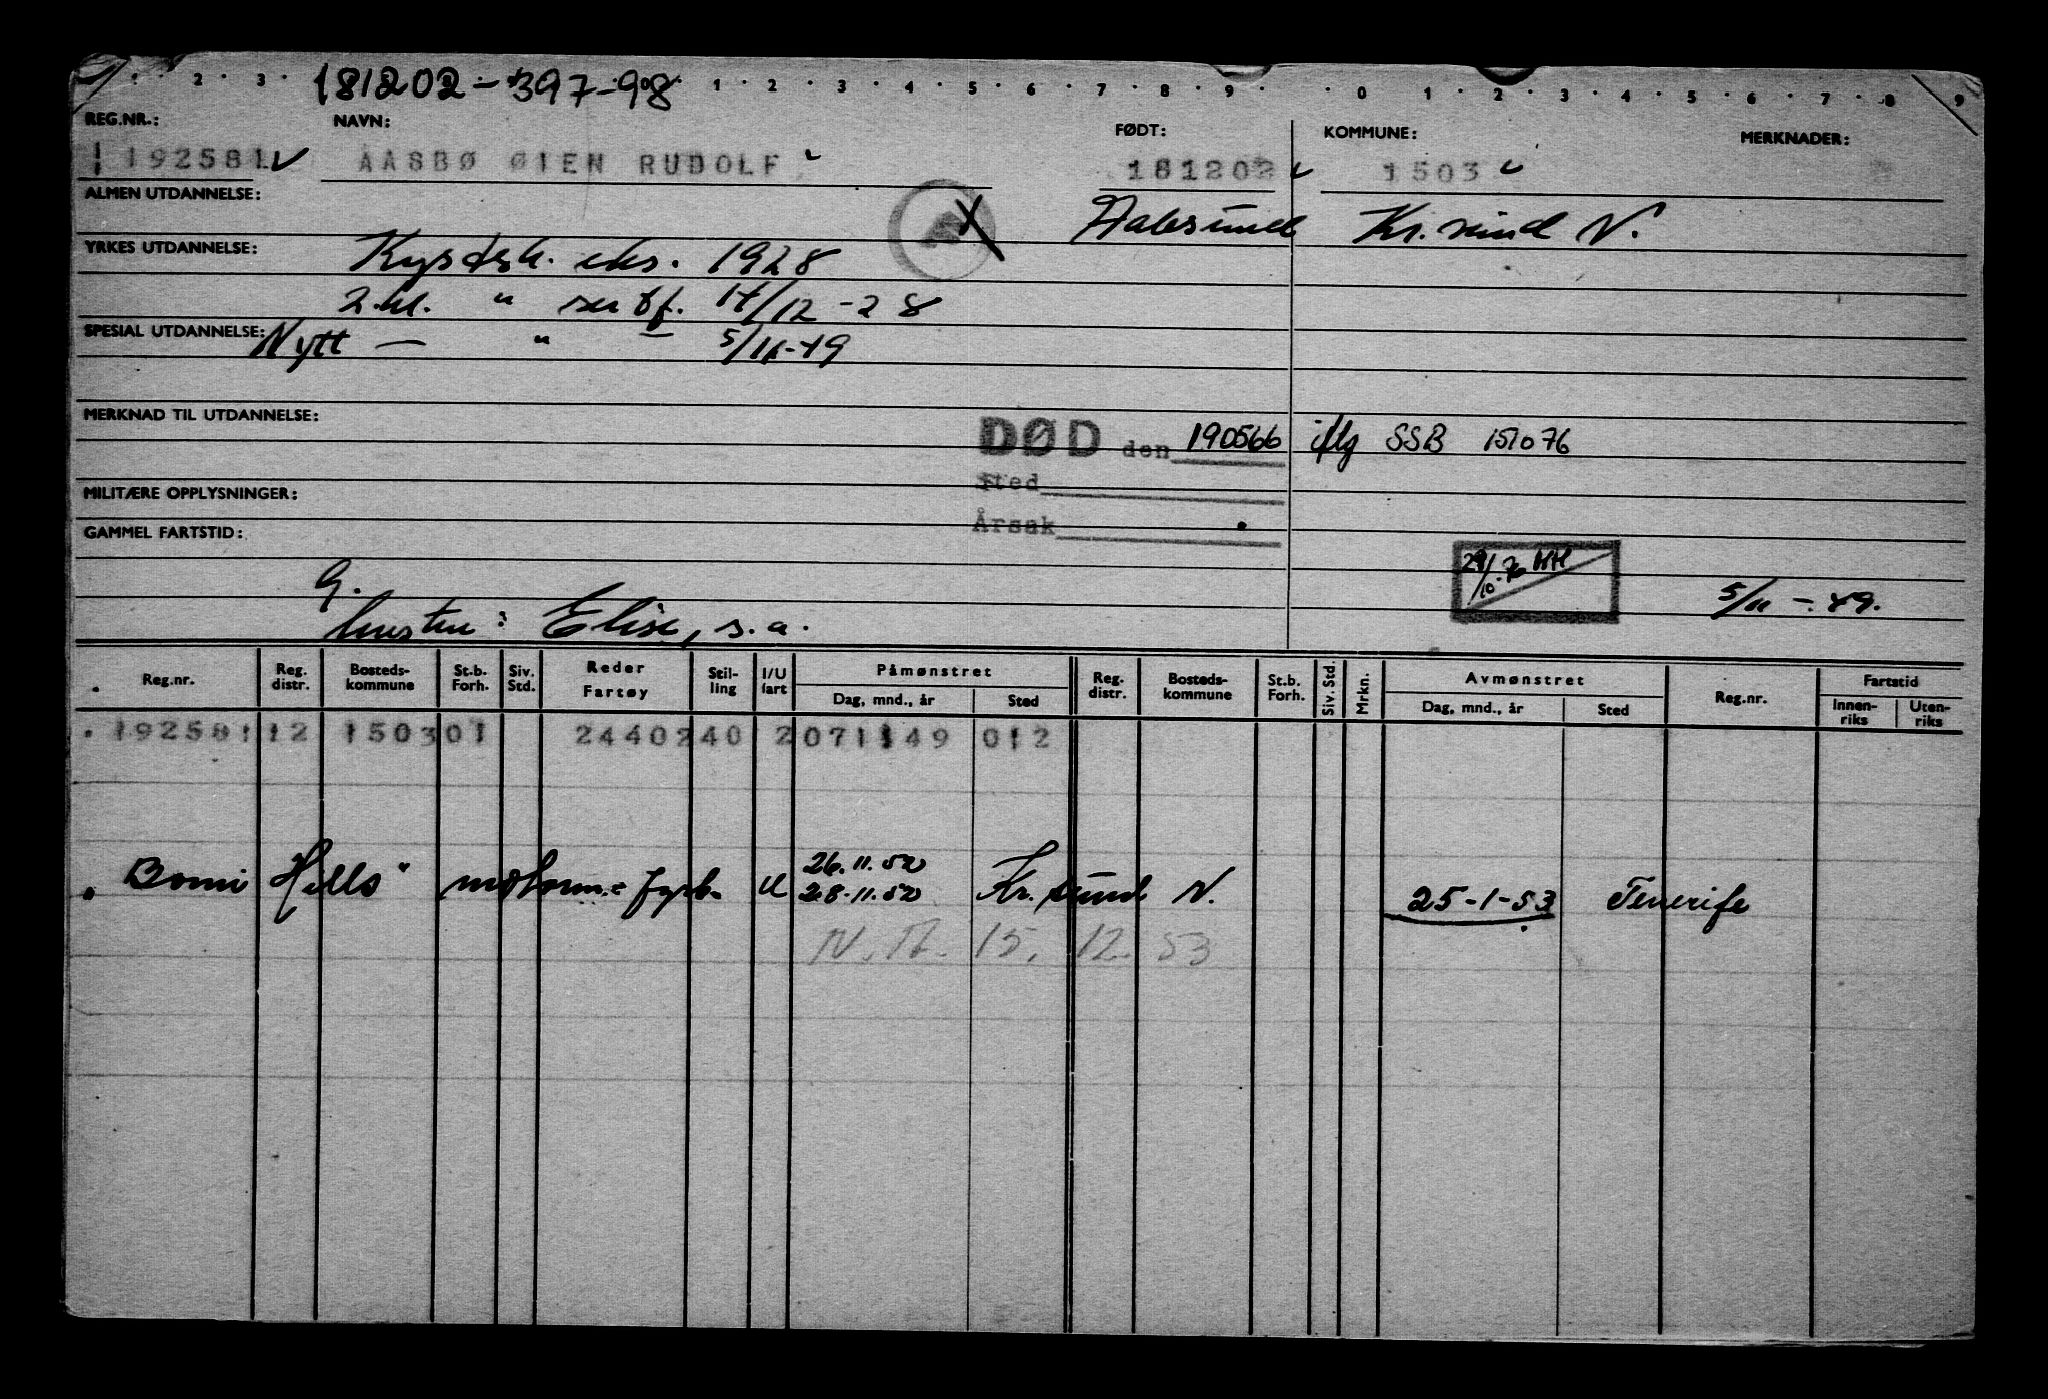 181202-397-98
1 2 3 1 2 3 4 5 6 7 8 9 0 1 2 3 4 5 6 7 8 9
REG.NR.: NAVN: FØDT: KOMMUNE: MERKNADER:
192581 AASBØ ØIEN RUDOLF 181202 1503
ALMEN UTDANNELSE: Aalesund Kr.sund N.
YRKES UTDANNELSE: Kystsk. eks. 1928
2.kl. " sertf. 14/12-28
SPESIAL UTDANNELSE: Nytt — " — 5/11-49
MERKNAD TIL UTDANNELSE:
DØD den 190566 iflg SSB 151076
Sted
MILITÆRE OPPLYSNINGER:
Årsak
GAMMEL FARTSTID:
29/10-70 HH
g. 5/11-49.
hustru: Elise, s.a.
Reg.nr. Reg. distr. Bosteds-kommune St.b. Forh. Siv. Std. Reder Fartøy Stil-ling I/U fart Påmønstret Dag, mnd., år Sted Reg. distr. Bosteds-kommune St.b. Forh. Siv. Std. Mrkn. Avmønstret Dag, mnd., år Sted Reg.nr. Fartstid Innen-riks Uten-riks
192581 12 1503 01 24402 40 2 071149 012
26.11.52
"Bomi Hills" motorm.= fyrb. U 28.11.52 Kr.sund N. 25-1-53 Tenerife
N.Tt. 15.12.53